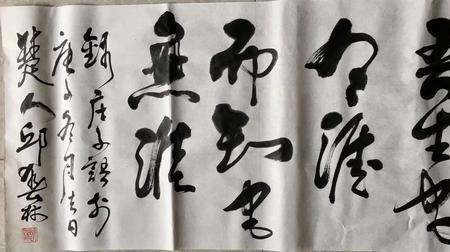 吾生也
有涯
而知也
無涯
錄庄子語於
庚子冬月吉日
楚人邱林